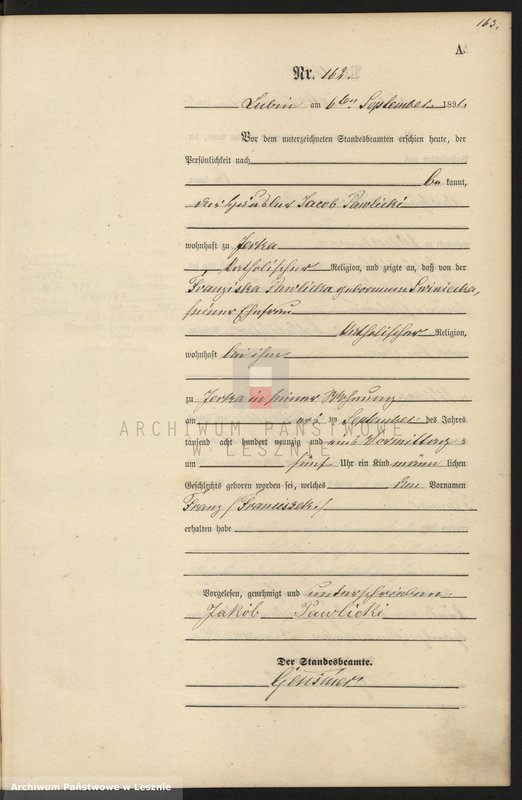 162.
A.
Nr. 162.
Lubin am 6ten September 1891.
Vor dem unterzeichneten Standesbeamten erschien heute, der
Persönlichkeit nach
bekannt,
der Häusler Jacob Pawlicki
wohnhaft zu Jerka
katholischer Religion, und zeigte an, daß von der
Franziska Pawlicka geborenen
seiner Ehefrau
katholischer Religion,
wohnhaft bei ihm
zu Jerka in seiner Wohnung
am ten September des Jahres
tausend acht hundert neunzig und eins Vormittags
um fünf Uhr ein Kind männlichen
Geschlechts geboren worden sei, welches den Vornamen
Franz /Franciszek/
erhalten habe
Vorgelesen, genehmigt und unterschrieben
Jakób Pawlicki
Der Standesbeamte.
ARCHIWUM PAŃSTWOWE
W LESZNIE
Archiwum Państwowe w Lesznie